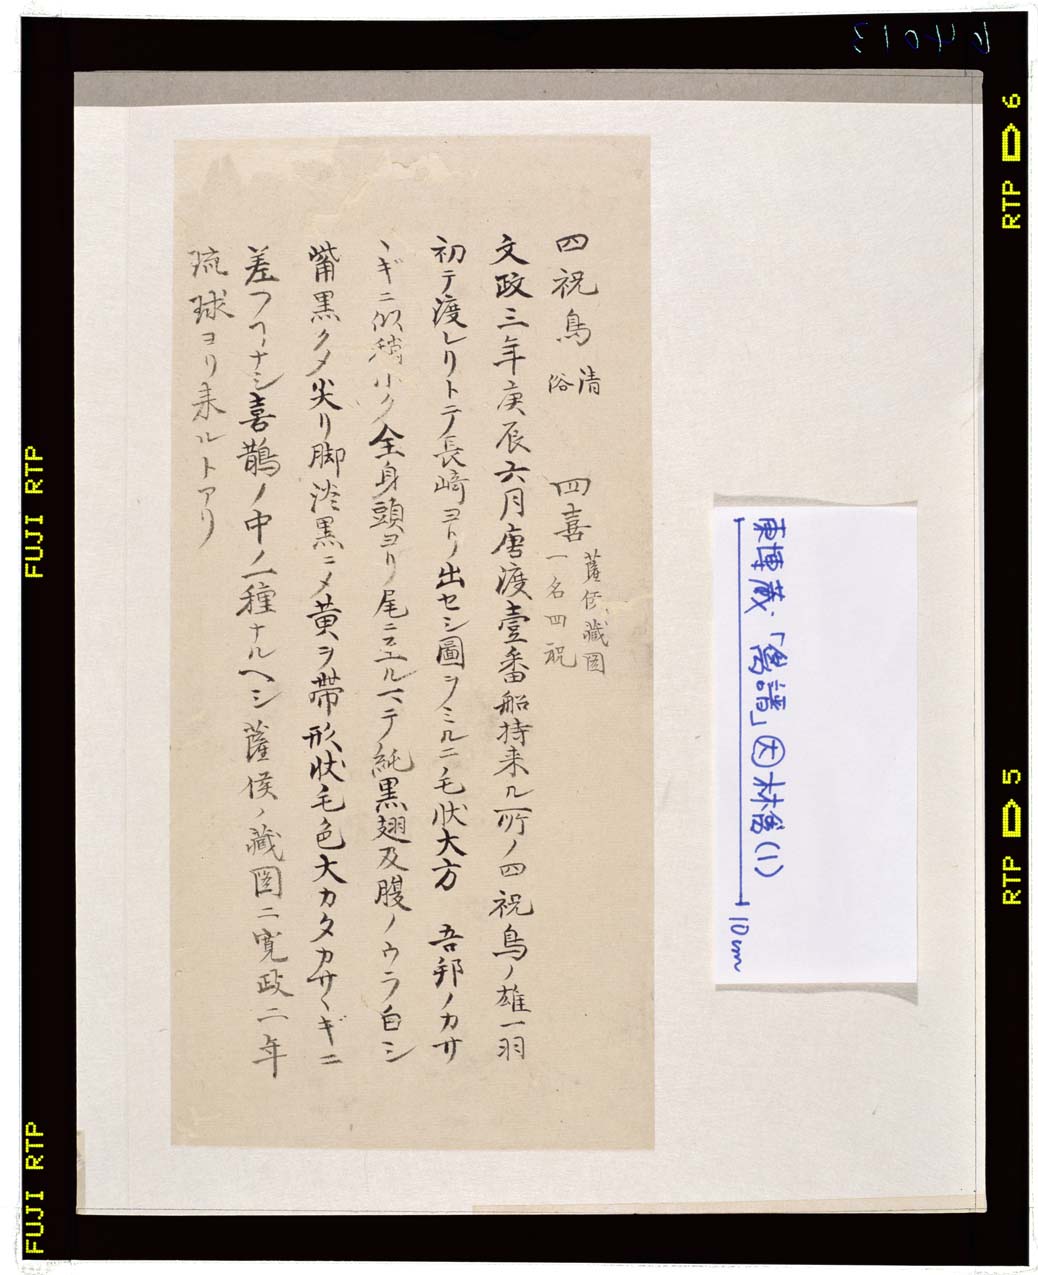 四祝鳥 清俗 四喜 薩侯藏圖 一名四祝
文政三年庚辰六月唐渡壹番船持来ル所ノ四祝鳥ノ雄一羽
初テ渡レリトテ長崎ヨリノ出セシ圖ヲミルニ毛状大方 吾邦ノカサ
ヽギニ似稍小ク全身頭ヨリ尾ニ至ルマテ純黒翅及腹ノウラ白シ
觜黒クメ尖リ脚淡黒ニメ黄ヲ帯形状毛色大カタカサヽギニ
差フヿナシ喜鵲ノ中ノ一種ナルヘシ薩侯ノ藏圖ニ寛政二年
琉球ヨリ来ルトアリ
東博蔵、「鳥譜」大 林編(1)
10cm
64013
RTP 6
RTP 5
FUJI RTP
FUJI RTP